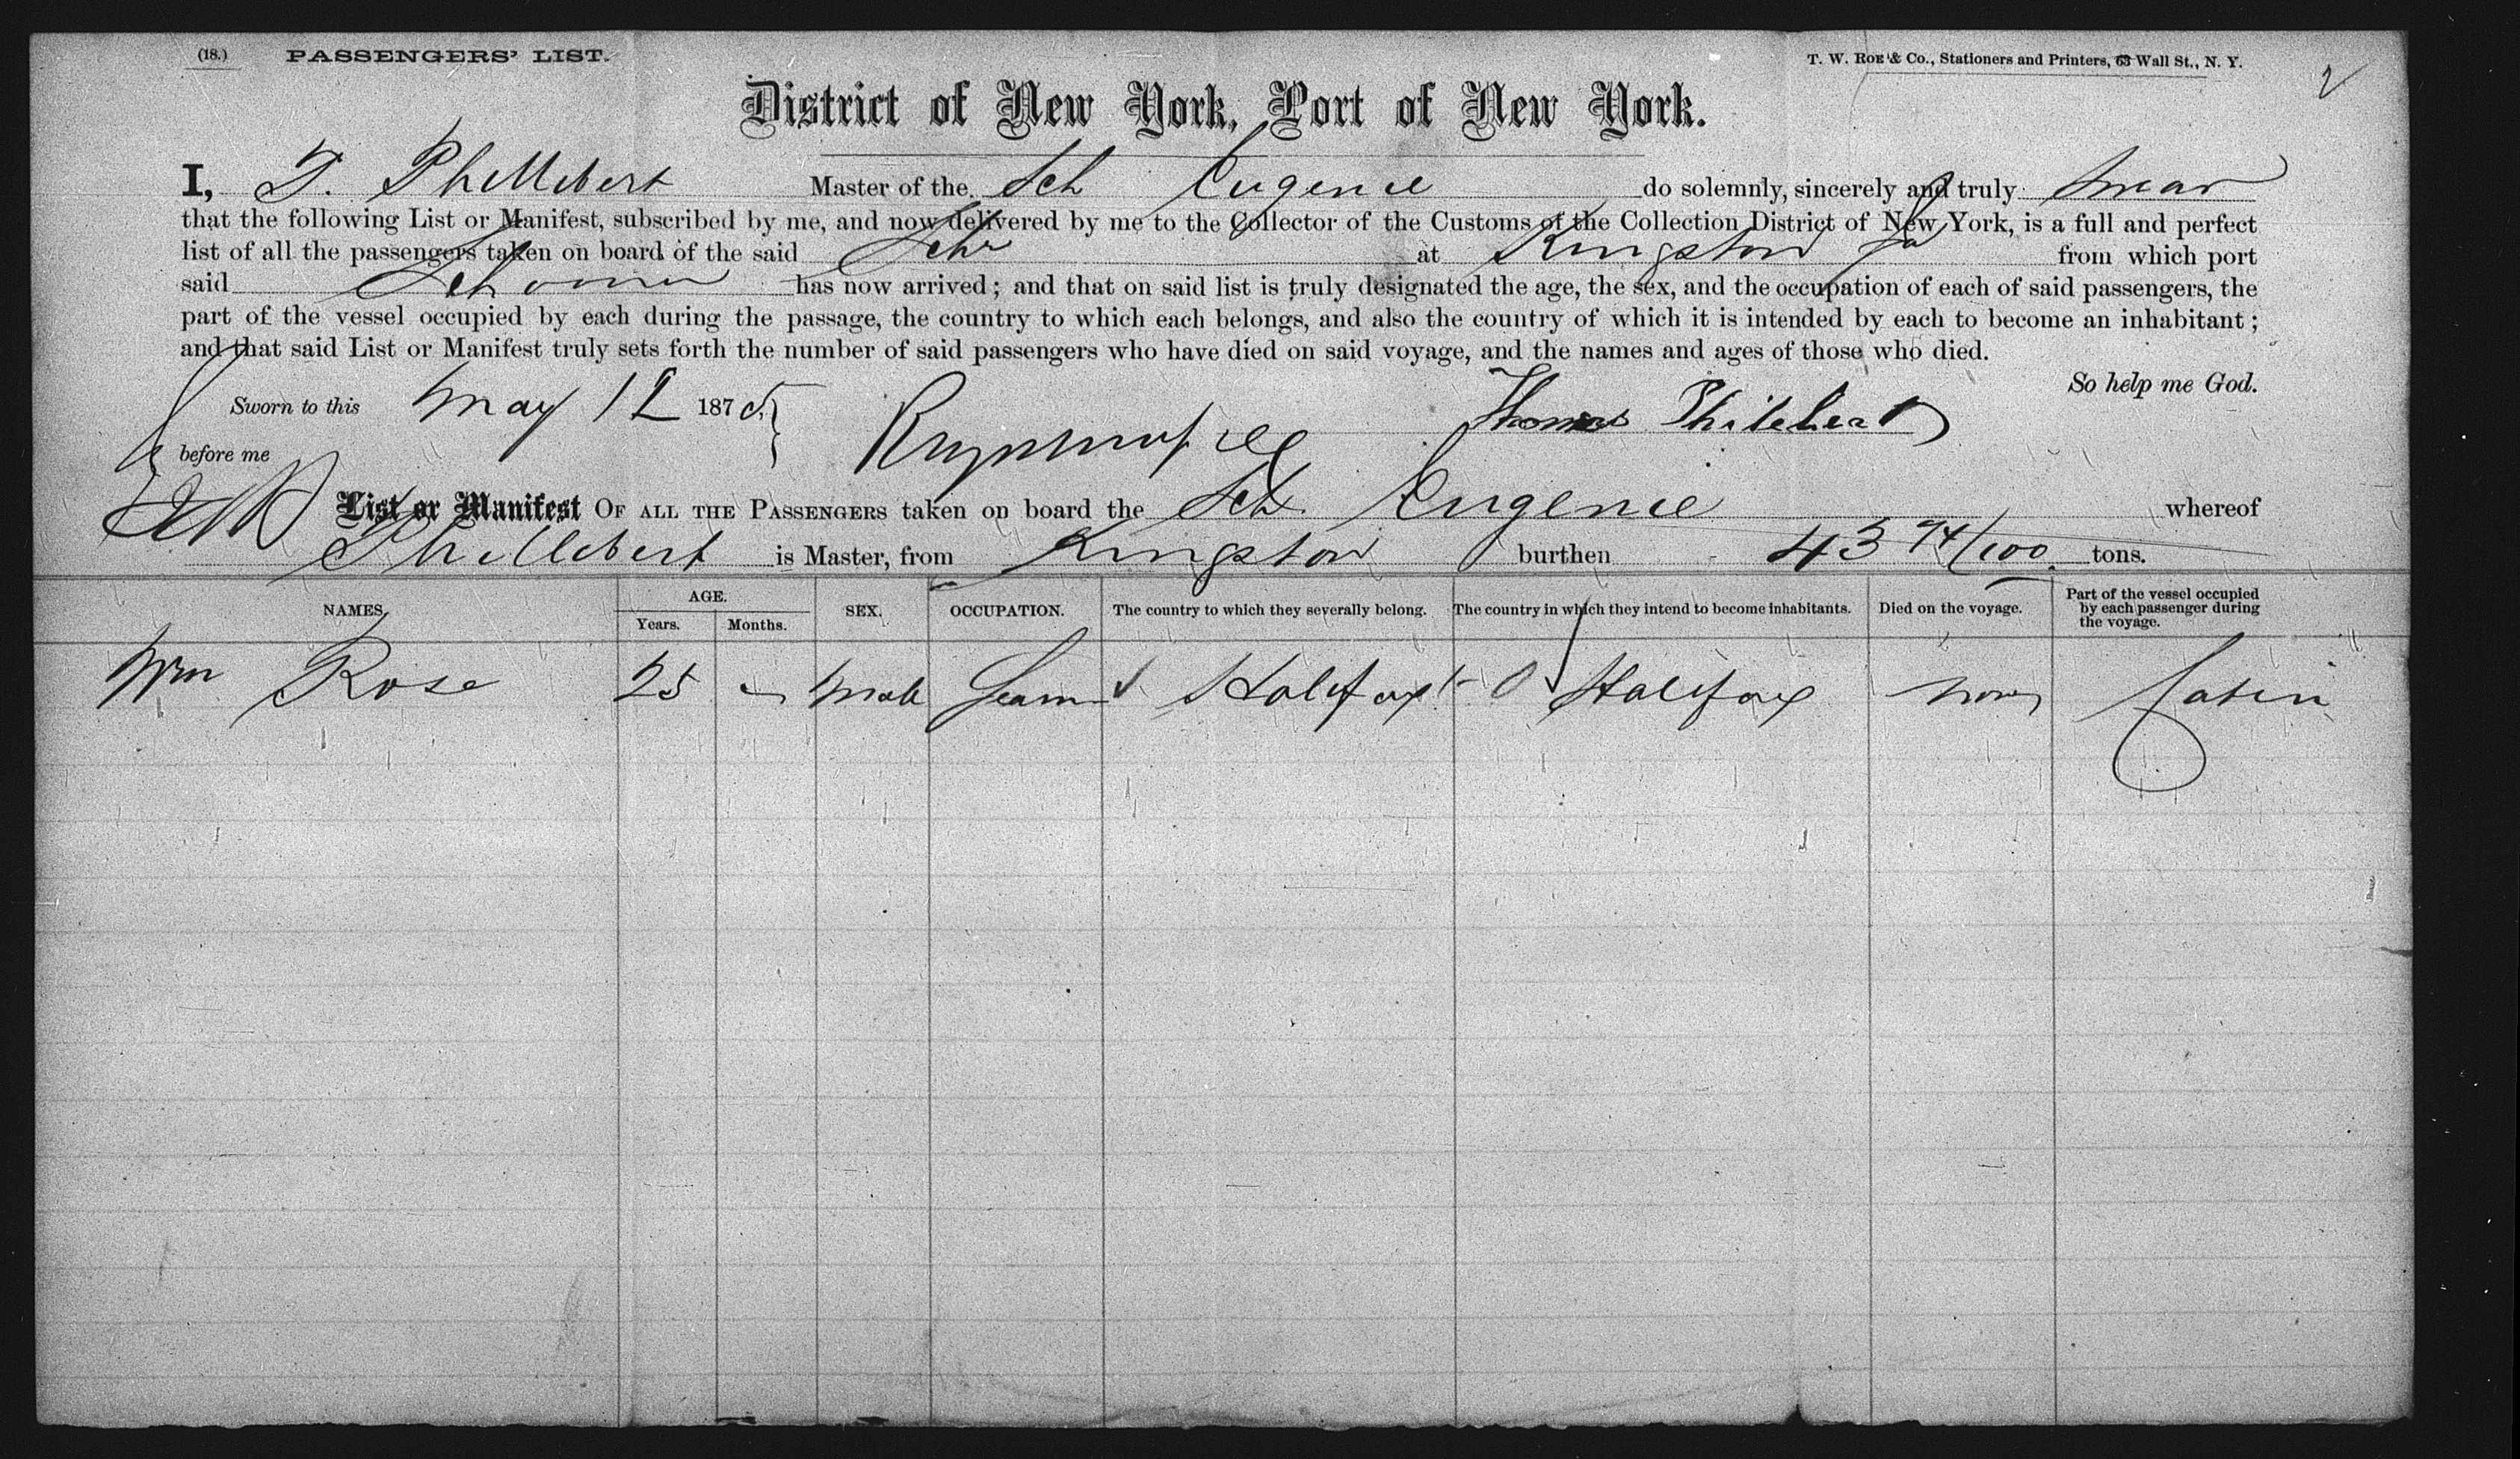 (18.) PASSENGERS' LIST. T. W. ROE & Co., Stationers and Printers, 63 Wall St., N. Y.
District of New York, Port of New York.
I, T. Phillibert Master of the Sch Eugenie do solemnly, sincerely and truly swear
that the following List or Manifest, subscribed by me, and now delivered by me to the Collector of the Customs of the Collection District of New York, is a full and perfect
list of all the passengers taken on board of the said Schr at Kingston Ja from which port
said Schooner has now arrived; and that on said list is truly designated the age, the sex, and the occupation of each of said passengers, the
part of the vessel occupied by each during the passage, the country to which each belongs, and also the country of which it is intended by each to become an inhabitant;
and that said List or Manifest truly sets forth the number of said passengers who have died on said voyage, and the names and ages of those who died.
So help me God.
Sworn to this May 12 1875 Thomas
before me
List or Manifest OF ALL THE PASSENGERS taken on board the Sch Eugenie whereof
Phillibert is Master, from Kingston burthen 43 94/100 tons.
NAMES. AGE. Years. Months. SEX. OCCUPATION. The country to which they severally belong. The country in which they intend to become inhabitants. Died on the voyage. Part of the vessel occupied by each passenger during the voyage.
Wm Rose 25 - Male Seam Halifax Halifax None Cabin